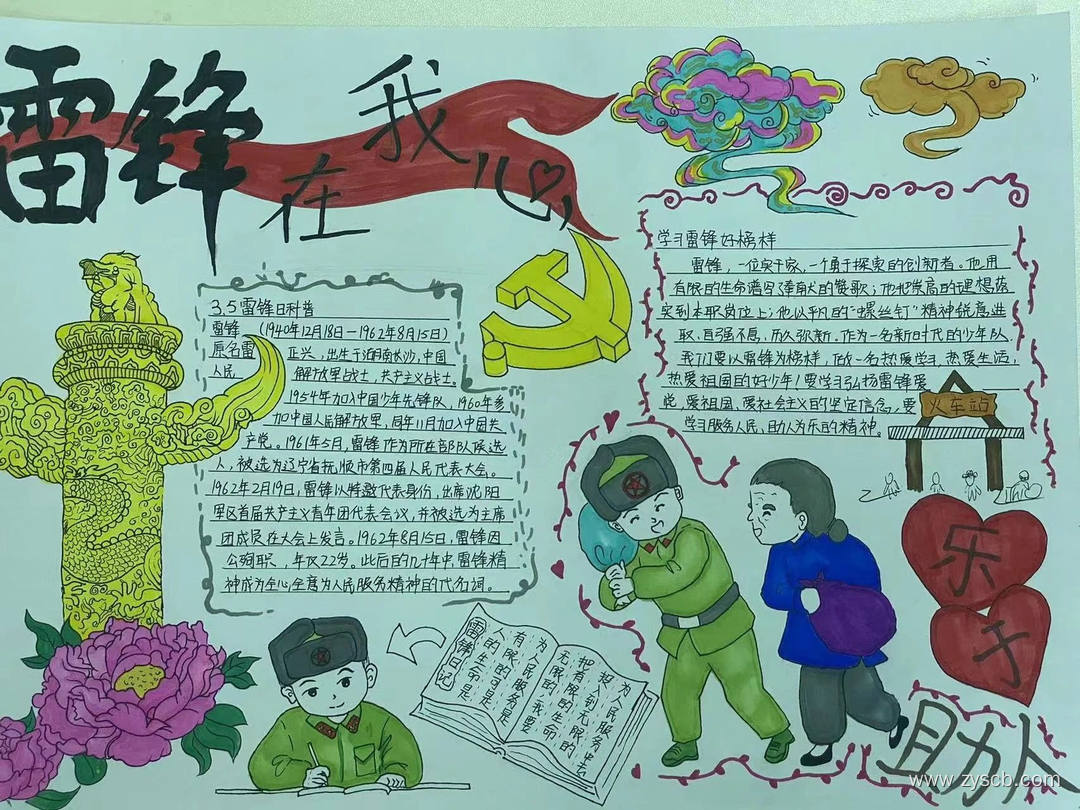 雷锋
在
我
心
3.5雷锋日科普
雷锋 (1940年12月18日—1962年8月15日)
原名雷 正兴,出生于湖南长沙,中国
人民 解放军战士,共产主义战士。
1954年加入中国少年先锋队,1960年参
加中国人民解放军,同年11月加入中国共
产党。1961年5月,雷锋作为所在部队候选
人,被选为辽宁省抚顺市第四届人民代表大会。
1962年2月19日,雷锋以特邀代表身份,出席沈阳
军区首届共产主义青年团代表会议,并被选为主席
团成员在大会上发言。1962年8月15日,雷锋因
公殉职,年仅22岁。此后的几十年中,雷锋精
神成为全心全意为人民服务精神的代名词。
学习雷锋好榜样
雷锋,一位实干家,一个勇于探索的创新者。他用
有限的生命谱写了奉献的赞歌;他把崇高的理想落
实到本职岗位上;他以平凡的"螺丝钉"精神锐意进
取、自强不息,历久弥新。作为一名新时代的少年队
我们要以雷锋为榜样,做一名热爱学习,热爱生活,
热爱祖国的好少年!要学习弘扬雷锋爱
党,爱祖国,爱社会主义的坚定信念,要
学习服务人民,助人为乐的精神。
火车站
乐
于
助人
雷锋日记
人的生命是
有限的可是
为人民服务是
无限的,我要
把有限的生命
投入到无限的
为人民服务中去
www.zyscb.com